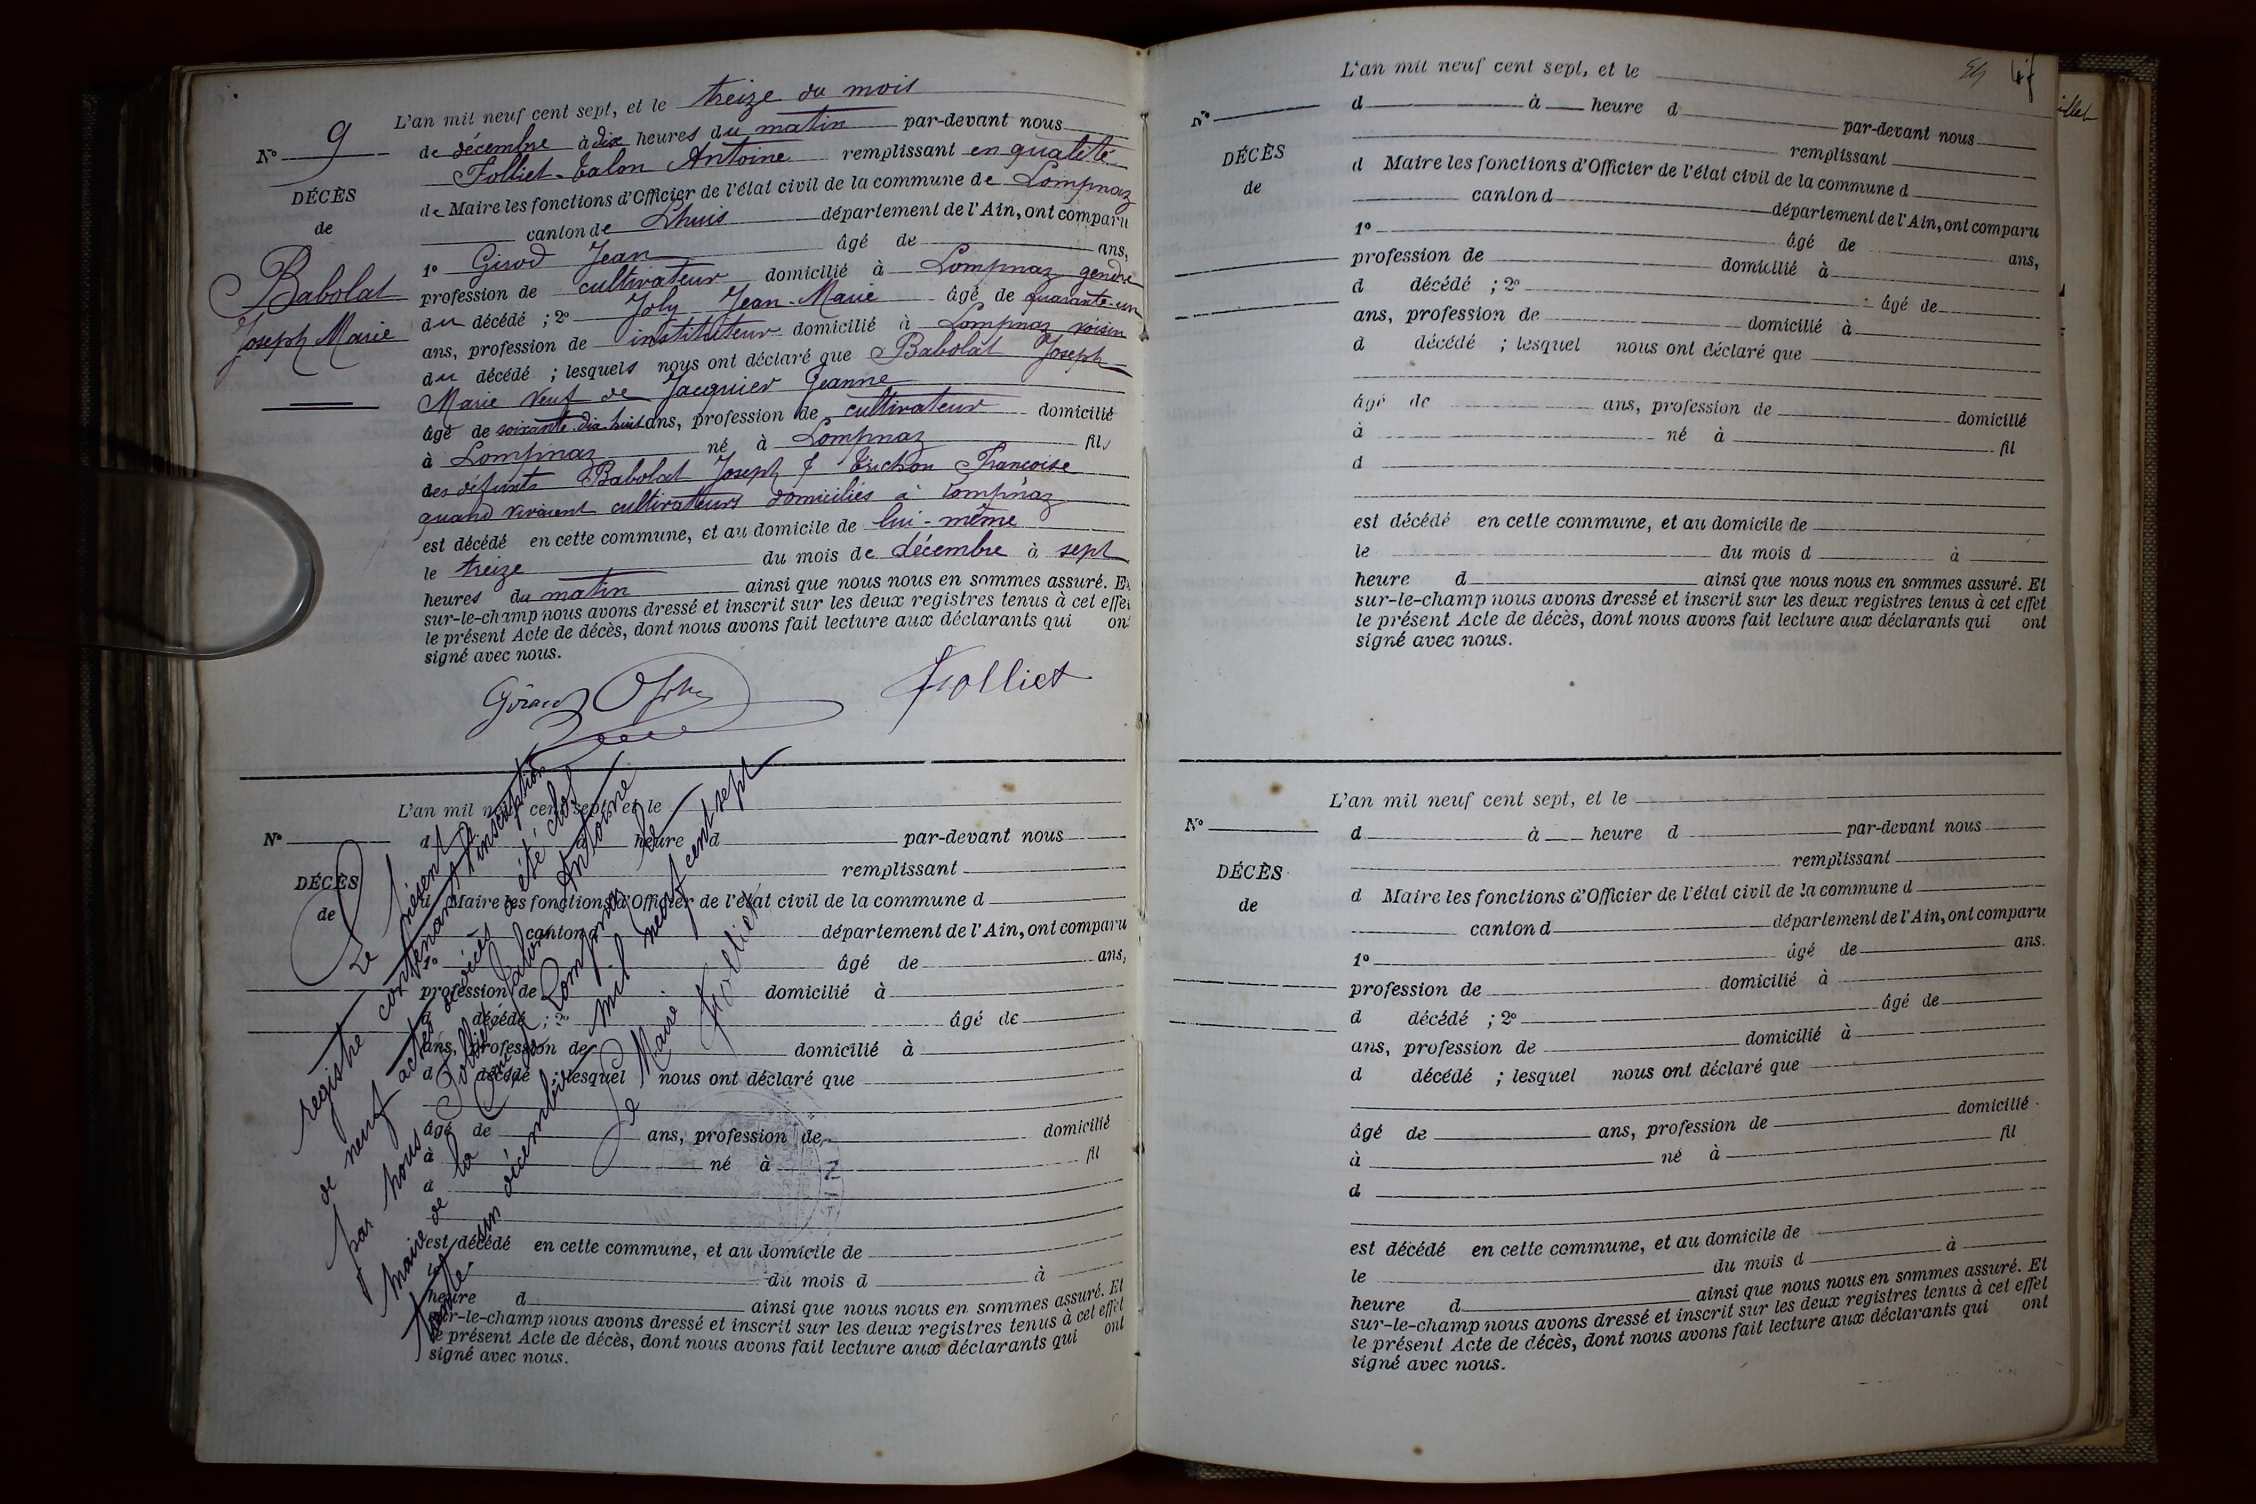 L'an mil neuf cent sept, et le treize du mois
N° 9
de décembre à dix heures du matin par-devant nous
Folliet-Talon Antoine remplissant en qualité
DÉCÈS
de Maire les fonctions d'Officier de l'état civil de la commune de Lompnaz
de
canton de Lhuis département de l'Ain, ont comparu
1° Girod Jean âgé de ans,
Babolat
profession de cultivateur domicilié à Lompnaz gendre
Joseph Marie
du décédé ; 2° Joly Jean-Marie âgé de quarante-un
ans, profession de instituteur domicilié à Lompnaz voisin
du décédé ; lesquels nous ont déclaré que Babolat Joseph
Marie veuf de Jacquier Jeanne
âgé de soixante dix huit ans, profession de cultivateur domicilié
à Lompnaz né à Lompnaz fils
des défunts Babolat Joseph & Trichon Françoise
quand vivaient cultivateurs domiciliés à Lompnaz
est décédé en cette commune, et au domicile de lui-même
le treize du mois de décembre à sept
heures du matin ainsi que nous nous en sommes assuré. Et
sur-le-champ nous avons dressé et inscrit sur les deux registres tenus à cet effet
le présent Acte de décès, dont nous avons fait lecture aux déclarants qui ont
signé avec nous.
Girod Joly Folliet
L'an mil neuf cent sept, et le
N°
d à heure d par-devant nous
remplissant
DÉCÈS
d Maire les fonctions d'Officier de l'état civil de la commune d
de
canton d département de l'Ain, ont comparu
1° âgé de ans,
profession de domicilié à
d décédé ; 2° âgé de
ans, profession de domicilié à
d décédé ; lesquel nous ont déclaré que
âgé de ans, profession de domicilié
à né à fil
d
est décédé en cette commune, et au domicile de
le du mois d à
heure d ainsi que nous nous en sommes assuré. Et
sur-le-champ nous avons dressé et inscrit sur les deux registres tenus à cet effet
le présent Acte de décès, dont nous avons fait lecture aux déclarants qui ont
signé avec nous.
Le présent
registre contenant l'inscription
de neuf actes de décès a été clos
par nous Folliet Talon Antoine
maire de la Com de Lompnaz le
trente-un décembre mil neuf cent sept
Le Maire
Folliet
47
L'an mil neuf cent sept, et le
N°
d à heure d par-devant nous
remplissant
DÉCÈS
d Maire les fonctions d'Officier de l'état civil de la commune d
de
canton d département de l'Ain, ont comparu
1° âgé de ans,
profession de domicilié à
d décédé ; 2° âgé de
ans, profession de domicilié à
d décédé ; lesquel nous ont déclaré que
âgé de ans, profession de domicilié
à né à fil
d
est décédé en cette commune, et au domicile de
le du mois d à
heure d ainsi que nous nous en sommes assuré. Et
sur-le-champ nous avons dressé et inscrit sur les deux registres tenus à cet effet
le présent Acte de décès, dont nous avons fait lecture aux déclarants qui ont
signé avec nous.
L'an mil neuf cent sept, et le
N°
d à heure d par-devant nous
remplissant
DÉCÈS
d Maire les fonctions d'Officier de l'état civil de la commune d
de
canton d département de l'Ain, ont comparu
1° âgé de ans.
profession de domicilié à
d décédé ; 2° âgé de
ans, profession de domicilié à
d décédé ; lesquel nous ont déclaré que
âgé de ans, profession de domicilié
à né à fil
d
est décédé en cette commune, et au domicile de
le du mois d à
heure d ainsi que nous nous en sommes assuré. Et
sur-le-champ nous avons dressé et inscrit sur les deux registres tenus à cet effet
le présent Acte de décès, dont nous avons fait lecture aux déclarants qui ont
signé avec nous.